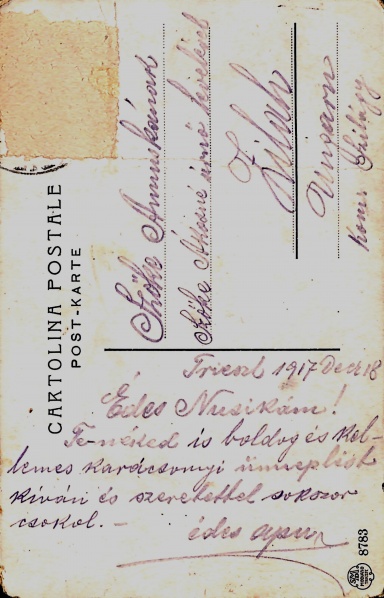 CARTOLINA POSTALE
POST-KARTE
Szőke Annuskának
Szőke Ákosné úrnő levelével
Zilah
Ungarn
kom. Szilágy
Trieszt 1917 dec 18
Édes Nusikám!
Tenéked is boldog és kel-
lemes karácsonyi ünnepliőt
kiván és szeretettel sokszor
csokol. -
édes apus
8783